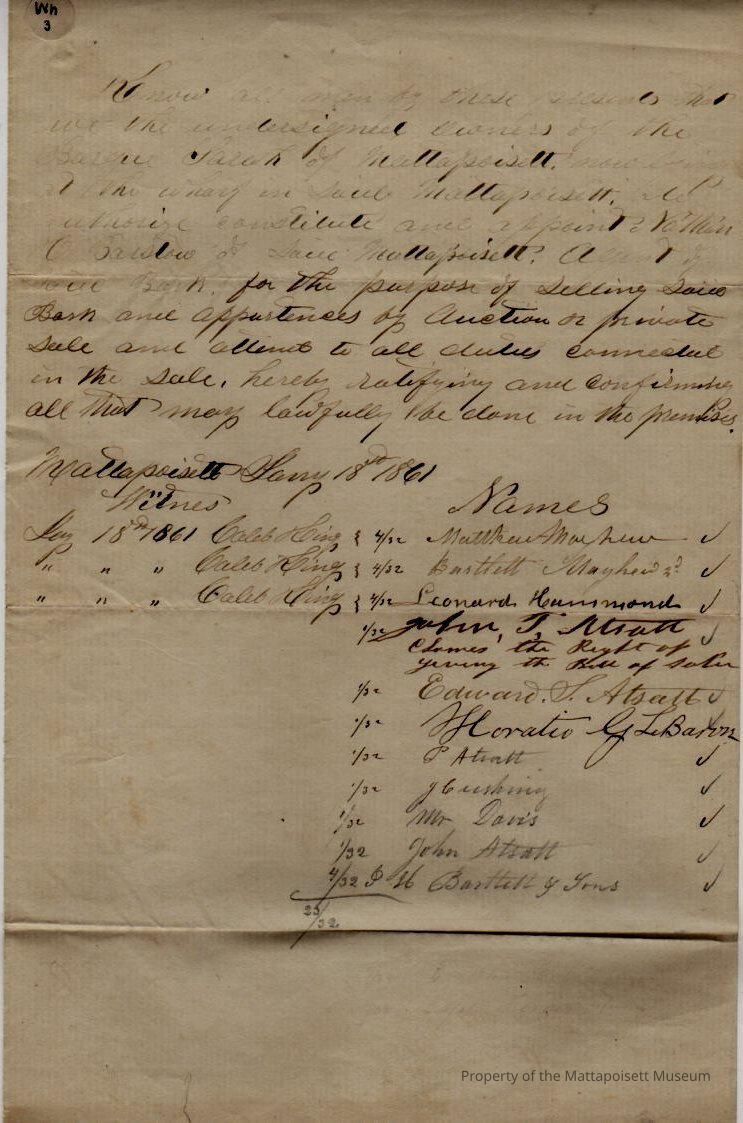 Wh
3
Know all men by these presents that
we the undersigned owners of the
Barque Sarah of Mattapoisett. now lying
at the wharf in said Mattapoisett. do
authorize constitute and appoint
C Barstow of said Mattapoisett. Agent of
said Bark. for the purpose of selling said
Bark and appertences by Auction or private
sale and attend to all duties connected
in the sale, hereby ratifying and confirming
all that may lawfully be done in the premises.
Mattapoisett Jany 18th 1861
Witnes Names
Jany 18th 1861 Caleb King } 4/32 Matthew Mayhew ✓
" " " Caleb King } 4/32 Bartlett Mayhew 2d ✓
" " " Caleb King } 4/32 Leonard Hammond ✓
1/32 John, T, Atsatt ✓
Clames the Right of
geving the Bill of Sale
1/32 Edward. S. Atsatt ✓
1/32 Horatio G LeBaron
1/32 P Atsatt ✓
1/32 J Cushing ✓
1/32 Mr Davis ✓
1/32 John Atsatt ✓
4/32 I H Bartlett & Sons ✓
23/32
Property of the Mattapoisett Museum